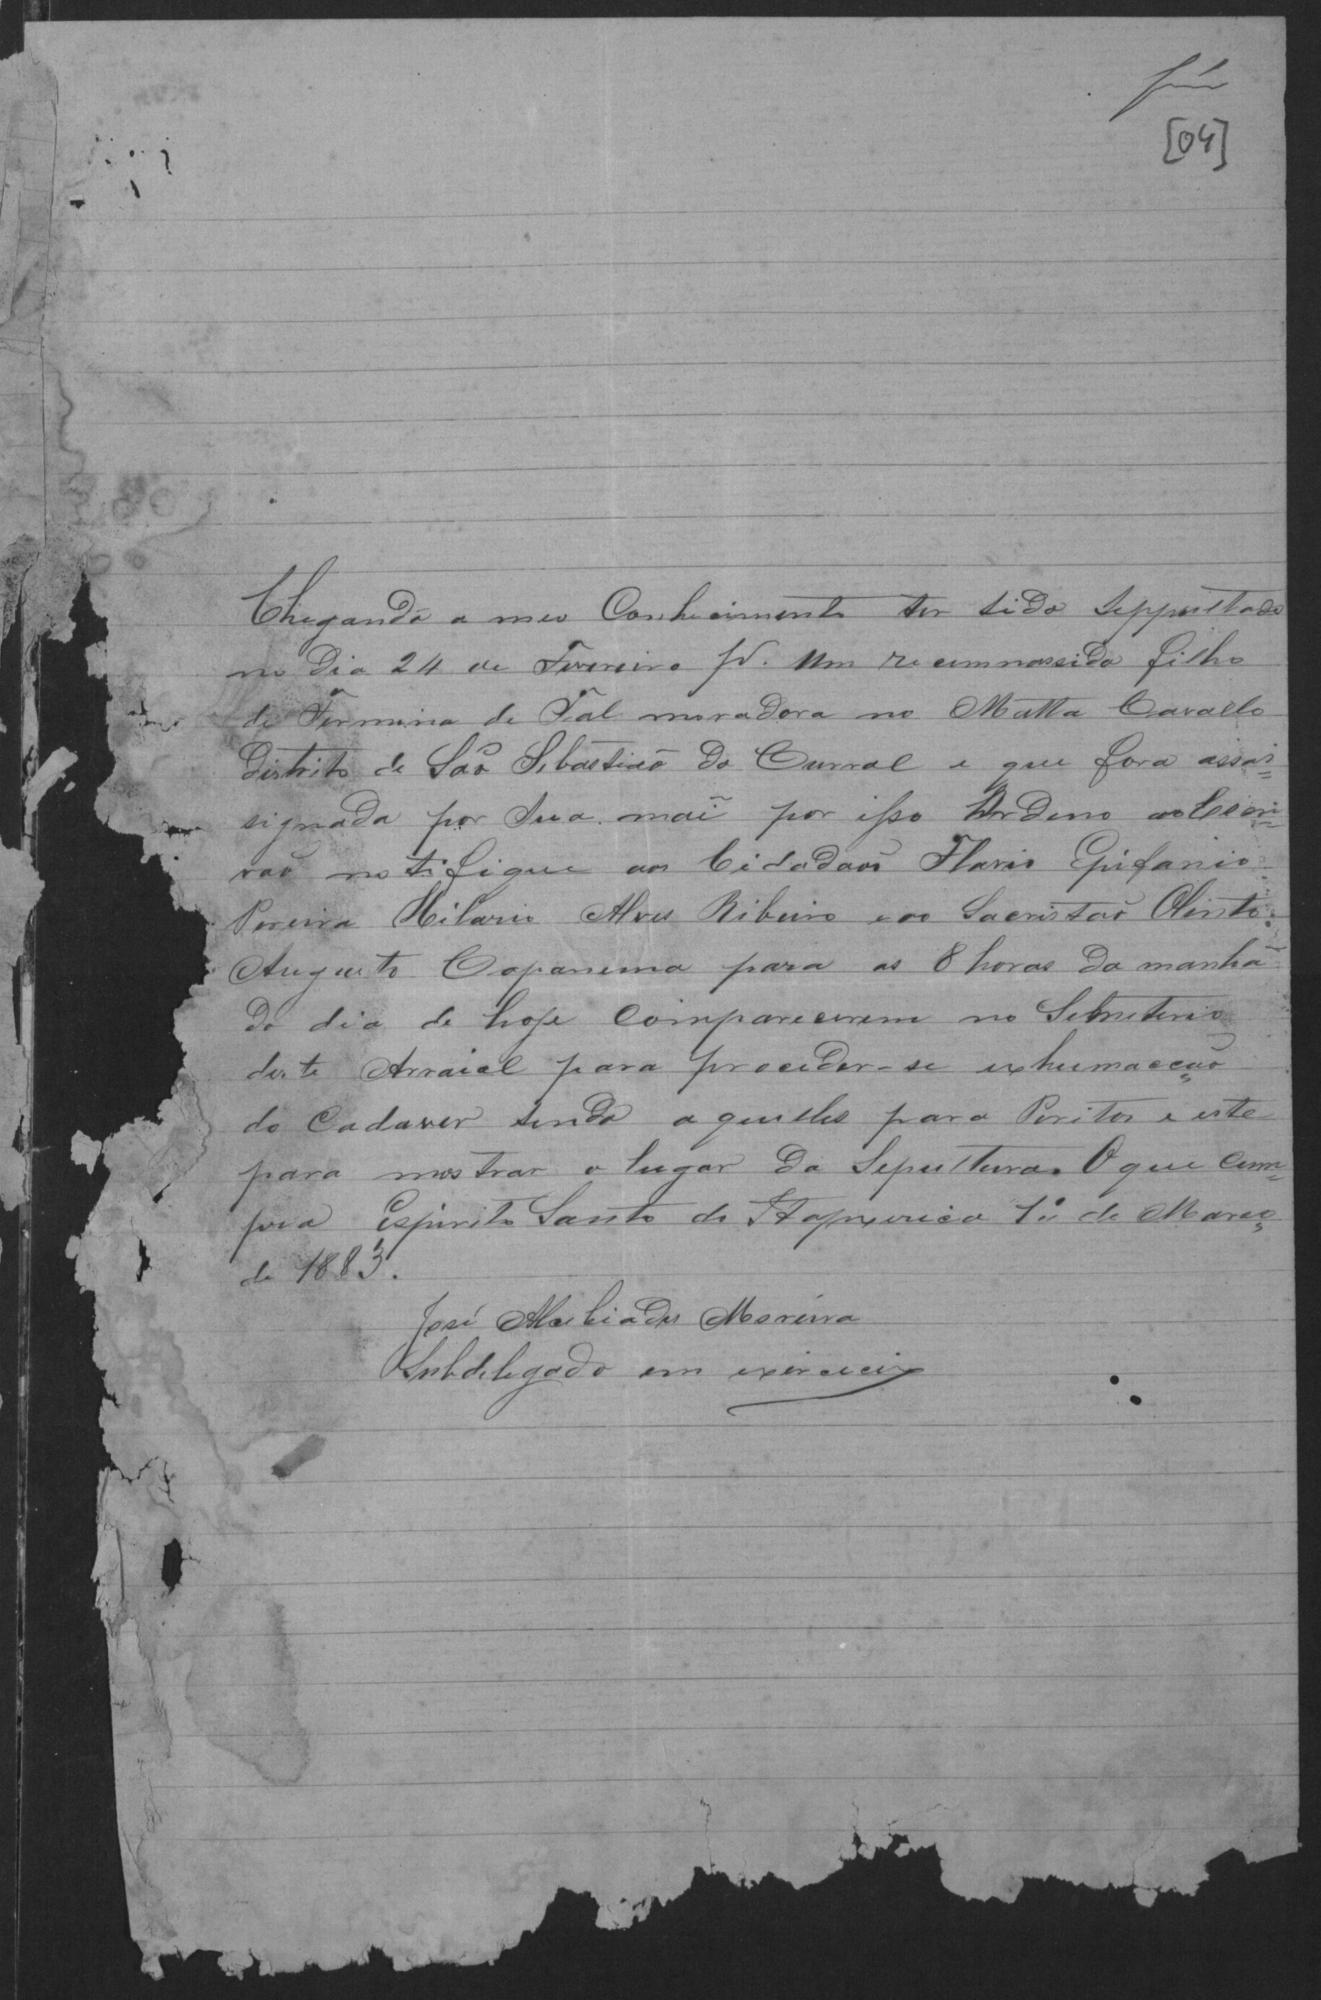 [04]
Chegando a meu Conhecimento ter sido Seppultado
no Dia 24 de Fevereiro pp. um recemnassido filho
de Firmina de Tal moradora no Matta Cavallo
Distrito de São Sebastião do Curral e que fora assas=
signada por sua mãi por isso Ordeno ao Escri=
vaõ notifique aos Cidadaõs Flavio Epifanio
Pereira Hilario Alves Ribeiro e ao Sacristaõ Olinto
Augusto Capanema para as 8 horas da manhã
do dia de hoje Comparecerem no Semeterio
deste Arraial para proceder-se exhumacção
do Cadaver sendo aquelles para Peritos e este
para mostrar o lugar da Sepultura. O que Cum=
pra Espirito Santo do Itapecerica 1º de Março
de 1883.
José Alcebiades Moreira
Subdelegado em exercicio